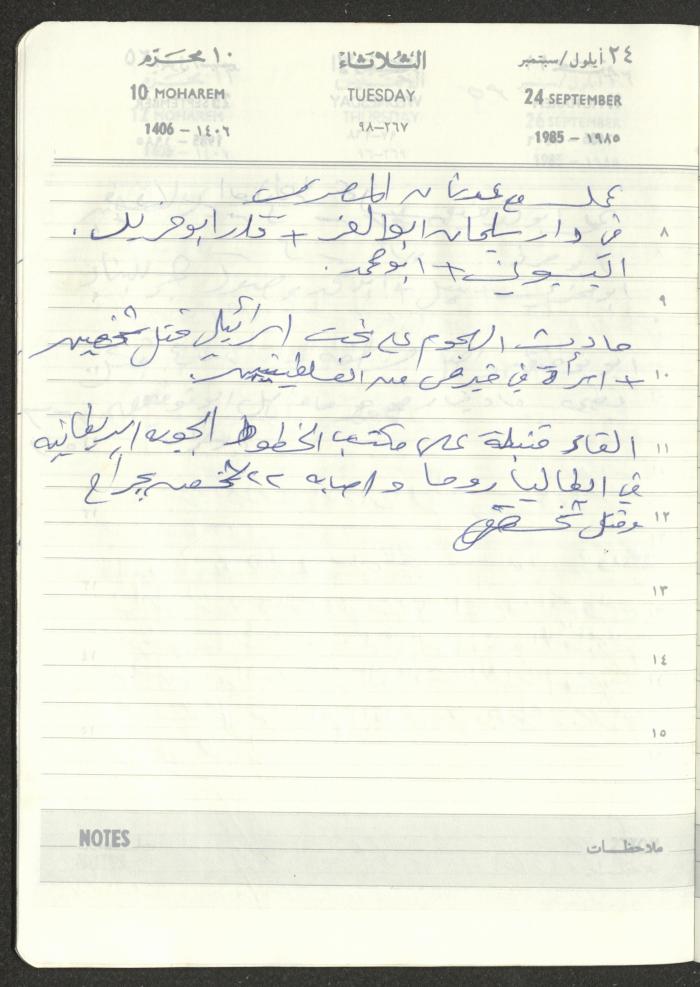 ٢٤ أيلول/سبتمبر الثلاثاء ١٠ محرّم
24 SEPTEMBER TUESDAY 10 MOHAREM
1985 - ١٩٨٥ ٩٨-٢٦٧ 1406 - ١٤٠٦
عمل مع عدنان المصري
٨ في دار سليمان ابو الفز + دار ابو فريد.
البسيوني + ابو محمد.
٩
حادث الهجوم على يخت اسرائيلي قتل شخصين
١٠ + امرأة في قبرص من الفلسطينين
١١ القاء قنبلة على مكتب الخطوط الجويه البريطانيه
في ايطاليا روما واصابه ٢٢ شخص بجراح
١٢ وقتل شخص
١٣
١٤
١٥
NOTES ملاحظات